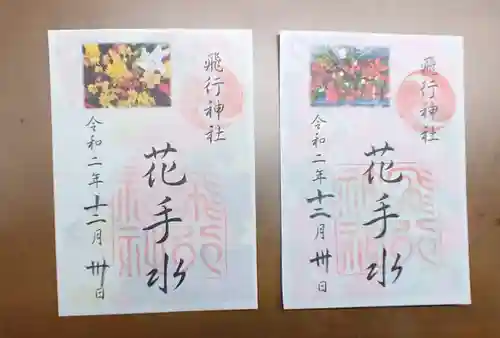 飛行神社
花手水
令和二年十二月卅日
飛行神社
花手水
令和二年十二月卅日